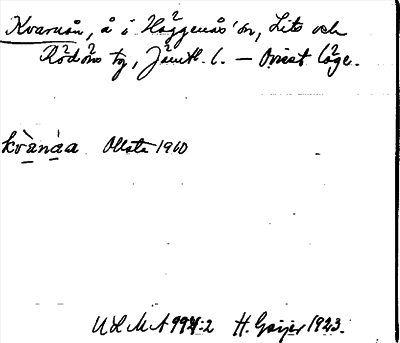 Kvarnån, å i Häggenås' sn, Lits och
Rödöns tg, Jämtl. l. — Ovisst läge.
kvànáa Ollsta 1910
ULMA 994:2 H. Geijer 1923.